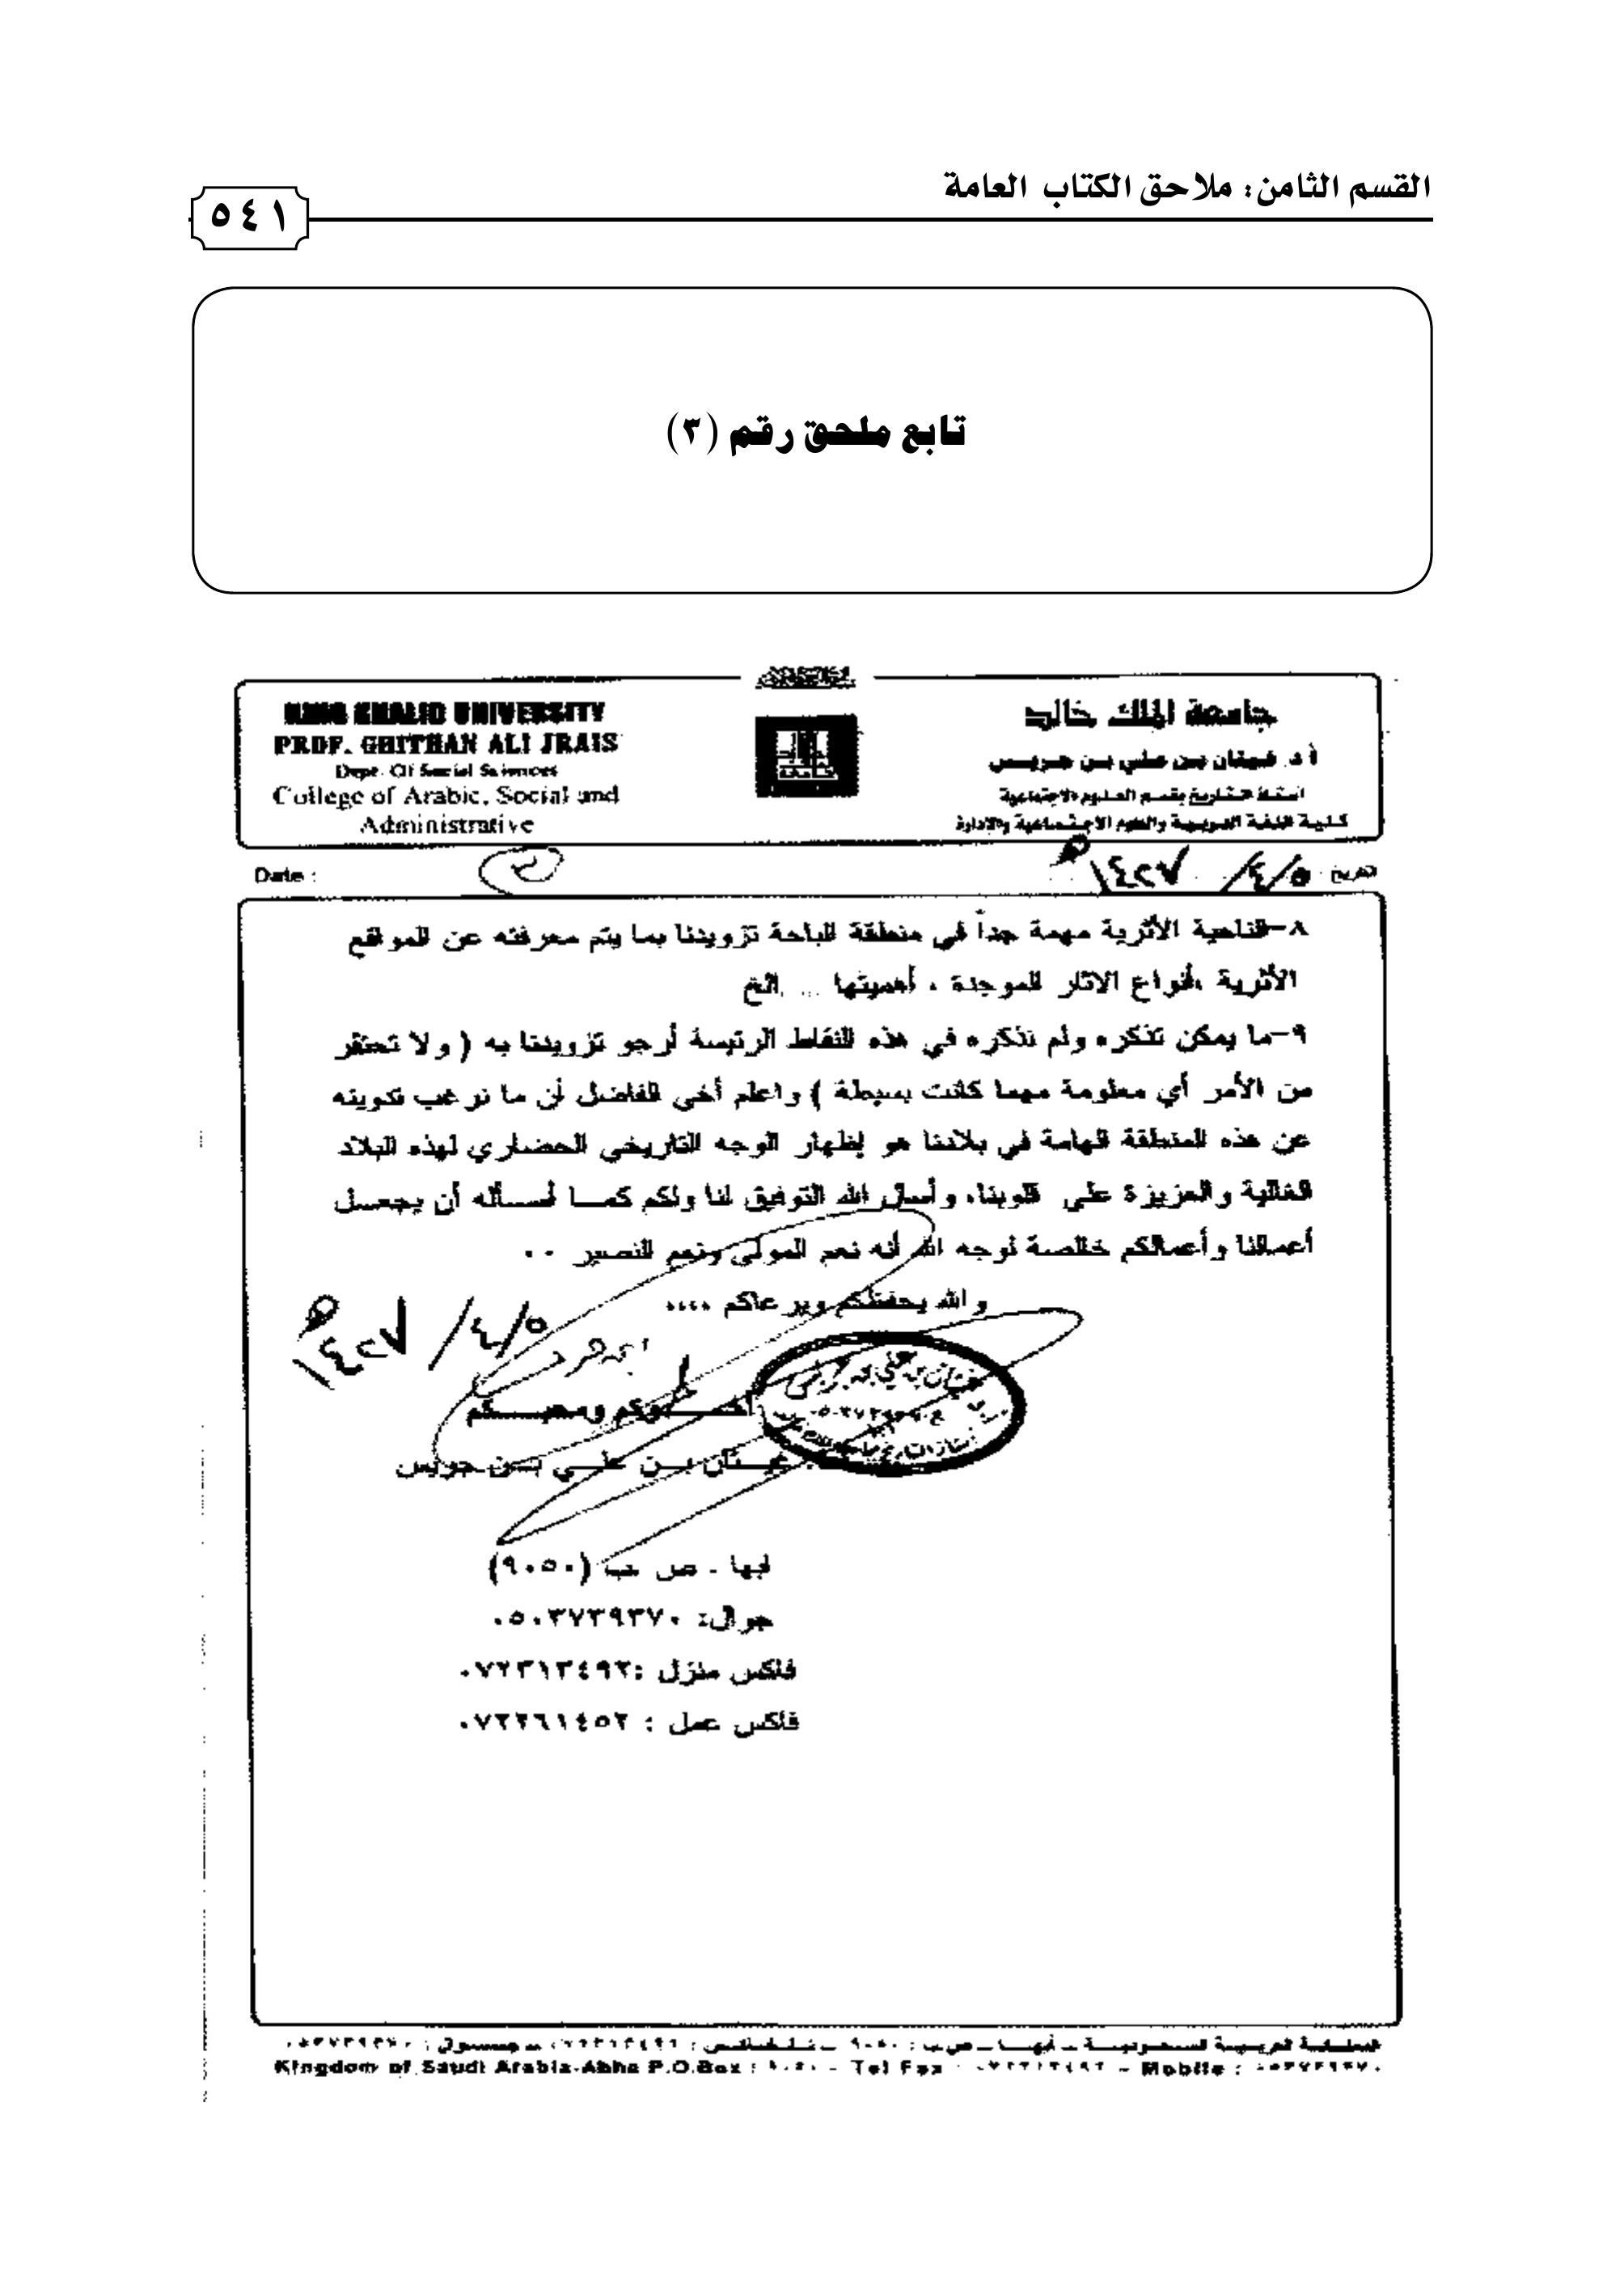 القسم الثامن: ملاحق الكتاب العامة
٥٤١
تابع ملحق رقم (٣)
KING KHALID UNIVERSITY
PROF. GHITHAN ALI JRAIS
Dept. Of Social Sciences
College of Arabic, Social and
Administrative
جامعة الملك خالد
أ.د. غيثان بن علي بن جريس
أستاذ التاريخ بقسم العلوم الاجتماعية
كلية اللغة العربية والعلوم الاجتماعية والإدارة
Date :
التاريخ ٥/٤/١٤٢٧
٨-الناحية الأثرية مهمة جداً في منطقة الباحة تزويدنا بما يتم معرفته عن المواقع
الأثرية ،أنواع الاثار الموجدة ، أهميتها ... الخ
٩-ما يمكن تذكره ولم نذكره في هذه النقاط الرئيسة أرجو تزويدنا به ( ولا تحتقر
من الأمر أي معلومة مهما كانت بسيطة ) واعلم أخي الفاضل أن ما نرغب تدوينه
عن هذه المنطقة الهامة في بلادنا هو إظهار الوجه التاريخي الحضاري لهذه البلاد
الغالية والعزيزة على قلوبنا، وأسأل الله التوفيق لنا ولكم كمـــا أســأله أن يجعـــل
أعمالنا وأعمالكم خالصة لوجه الله أنه نعم المولى ونعم النصير ٠٠
والله يحفظكم ويرعاكم ....
٥/٤/١٤٢٧
أخـــــوكم ومحبـــــكم
غيـثان بـــن علـــي بـــن جريس
أبها - ص ب (٩٠٥٠)
جوال: ٠٥٠٣٧٣٩٣٧٠
فاكس منزل :٠٧٢٣١٣٤٩٢
فاكس عمل : ٠٧٢٢٦١٤٥٢
المملكة العربية السعودية - أبها - ص.ب :
Kingdom of Saudi Arabia-Abha P.O.Box : ٩٠٥٠ - Tel Fax - Mobile :